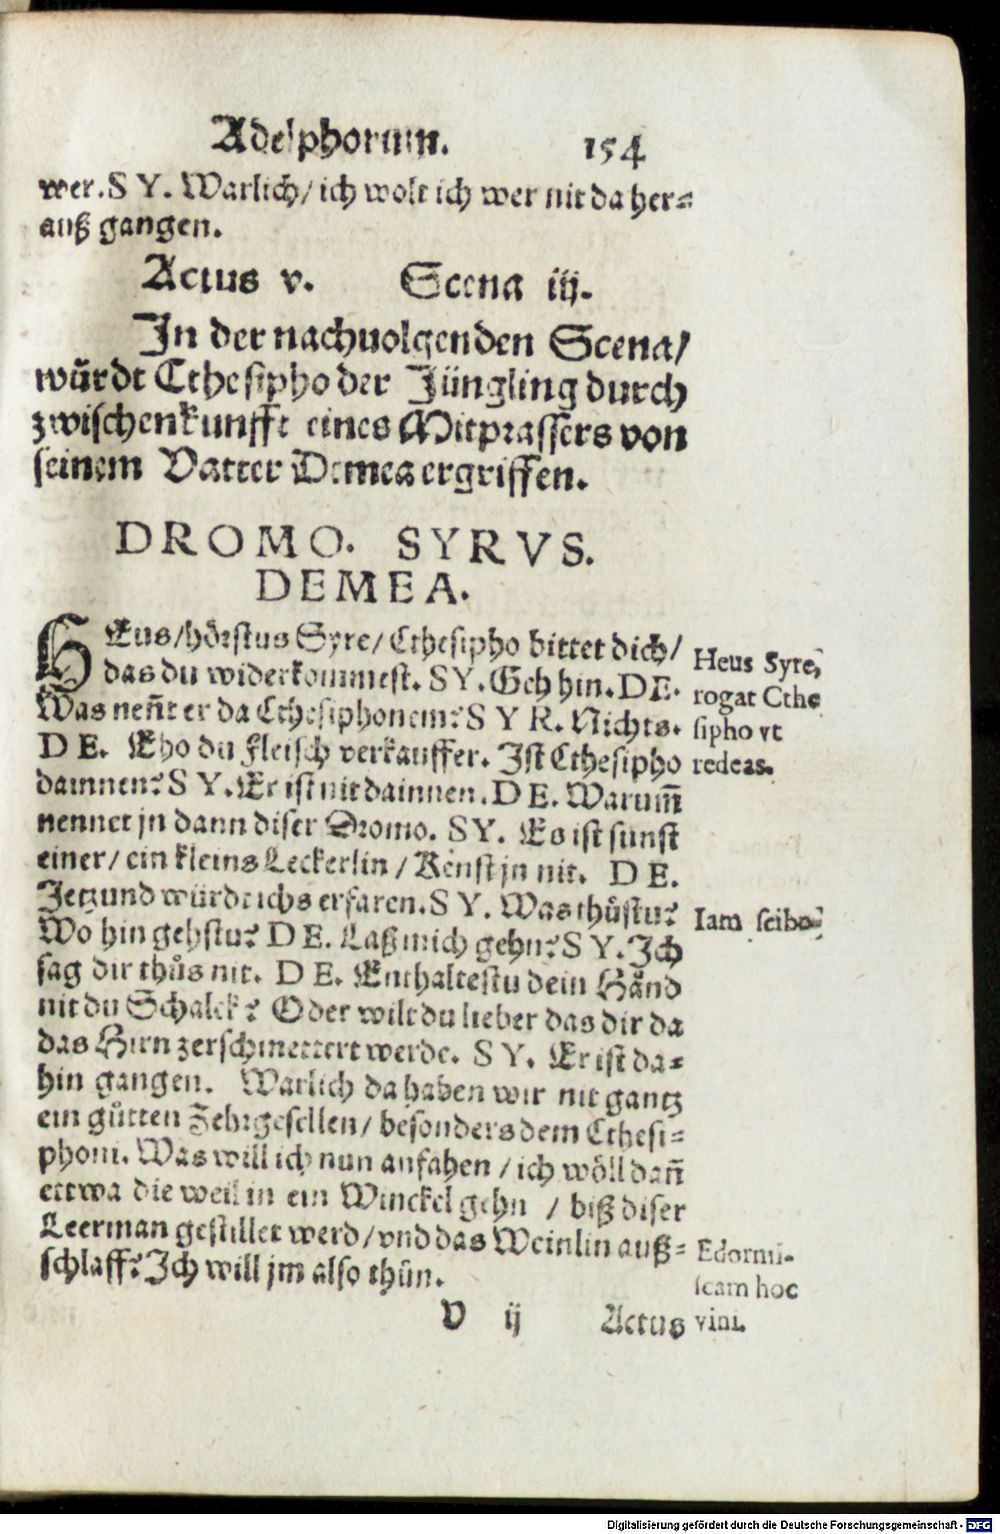 Adelphorum. 154
wer. S Y. Warlich/ ich wolt ich wer nit da her=
auß gangen.
Actus v. Scena iij.
In der nachuolgenden Scena/
würdt Cthesipho der Jüngling durch
zwischenkunfft eines Mitprassers von
seinem Vatter Demea ergriffen.
DROMO. SYRVS.
DEMEA.
HEus/hörstus Syre/ Cthesipho bittet dich/
das du widerkommest. S Y. Geh hin. D E.
Was neñt er da Cthesiphonem? S Y R. Nichts.
D E. Eho du fleisch verkauffer. Ist Cthesipho
dainnen? S Y. Er ist nit dainnen. D E. Warum̃
nennet jn dann diser Dromo. S Y. Es ist sunst
einer/ ein kleins Leckerlin/ Kenst jn nit. D E.
Jetzund würdt ichs erfaren. S Y. Was thůstu?
Wo hin gehstu? D E. Laß mich gehn? S Y. Ich
sag dir thůs nit. D E. Enthaltestu dein Händ
nit du Schalck? Oder wilt du lieber das dir da
das Hirn zerschmettert werde. S Y. Er ist da=
hin gangen. Warlich da haben wir nit gantz
ein gůtten Zehrgesellen/ besonders dem Cthesi=
phoni. Was will ich nun anfahen/ ich wöll dañ
ettwa die weil in ein Winckel gehn / biß diser
Leerman gestillet werd/ vnd das Weinlin auß=
schlaff? Ich will jm also thůn.
V ij Actus
Heus Syre,
rogat Cthe
sipho vt
redeas.
Iam scibo
Edormi-
scam hoc
vini.
Digitalisierung gefördert durch die Deutsche Forschungsgemeinschaft - DFG